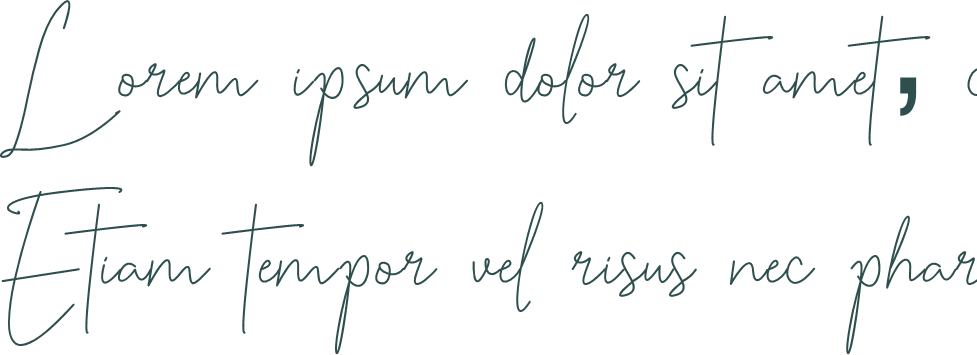 Lorem ipsum dolor sit amet, c
Etiam tempor vel risus nec phar